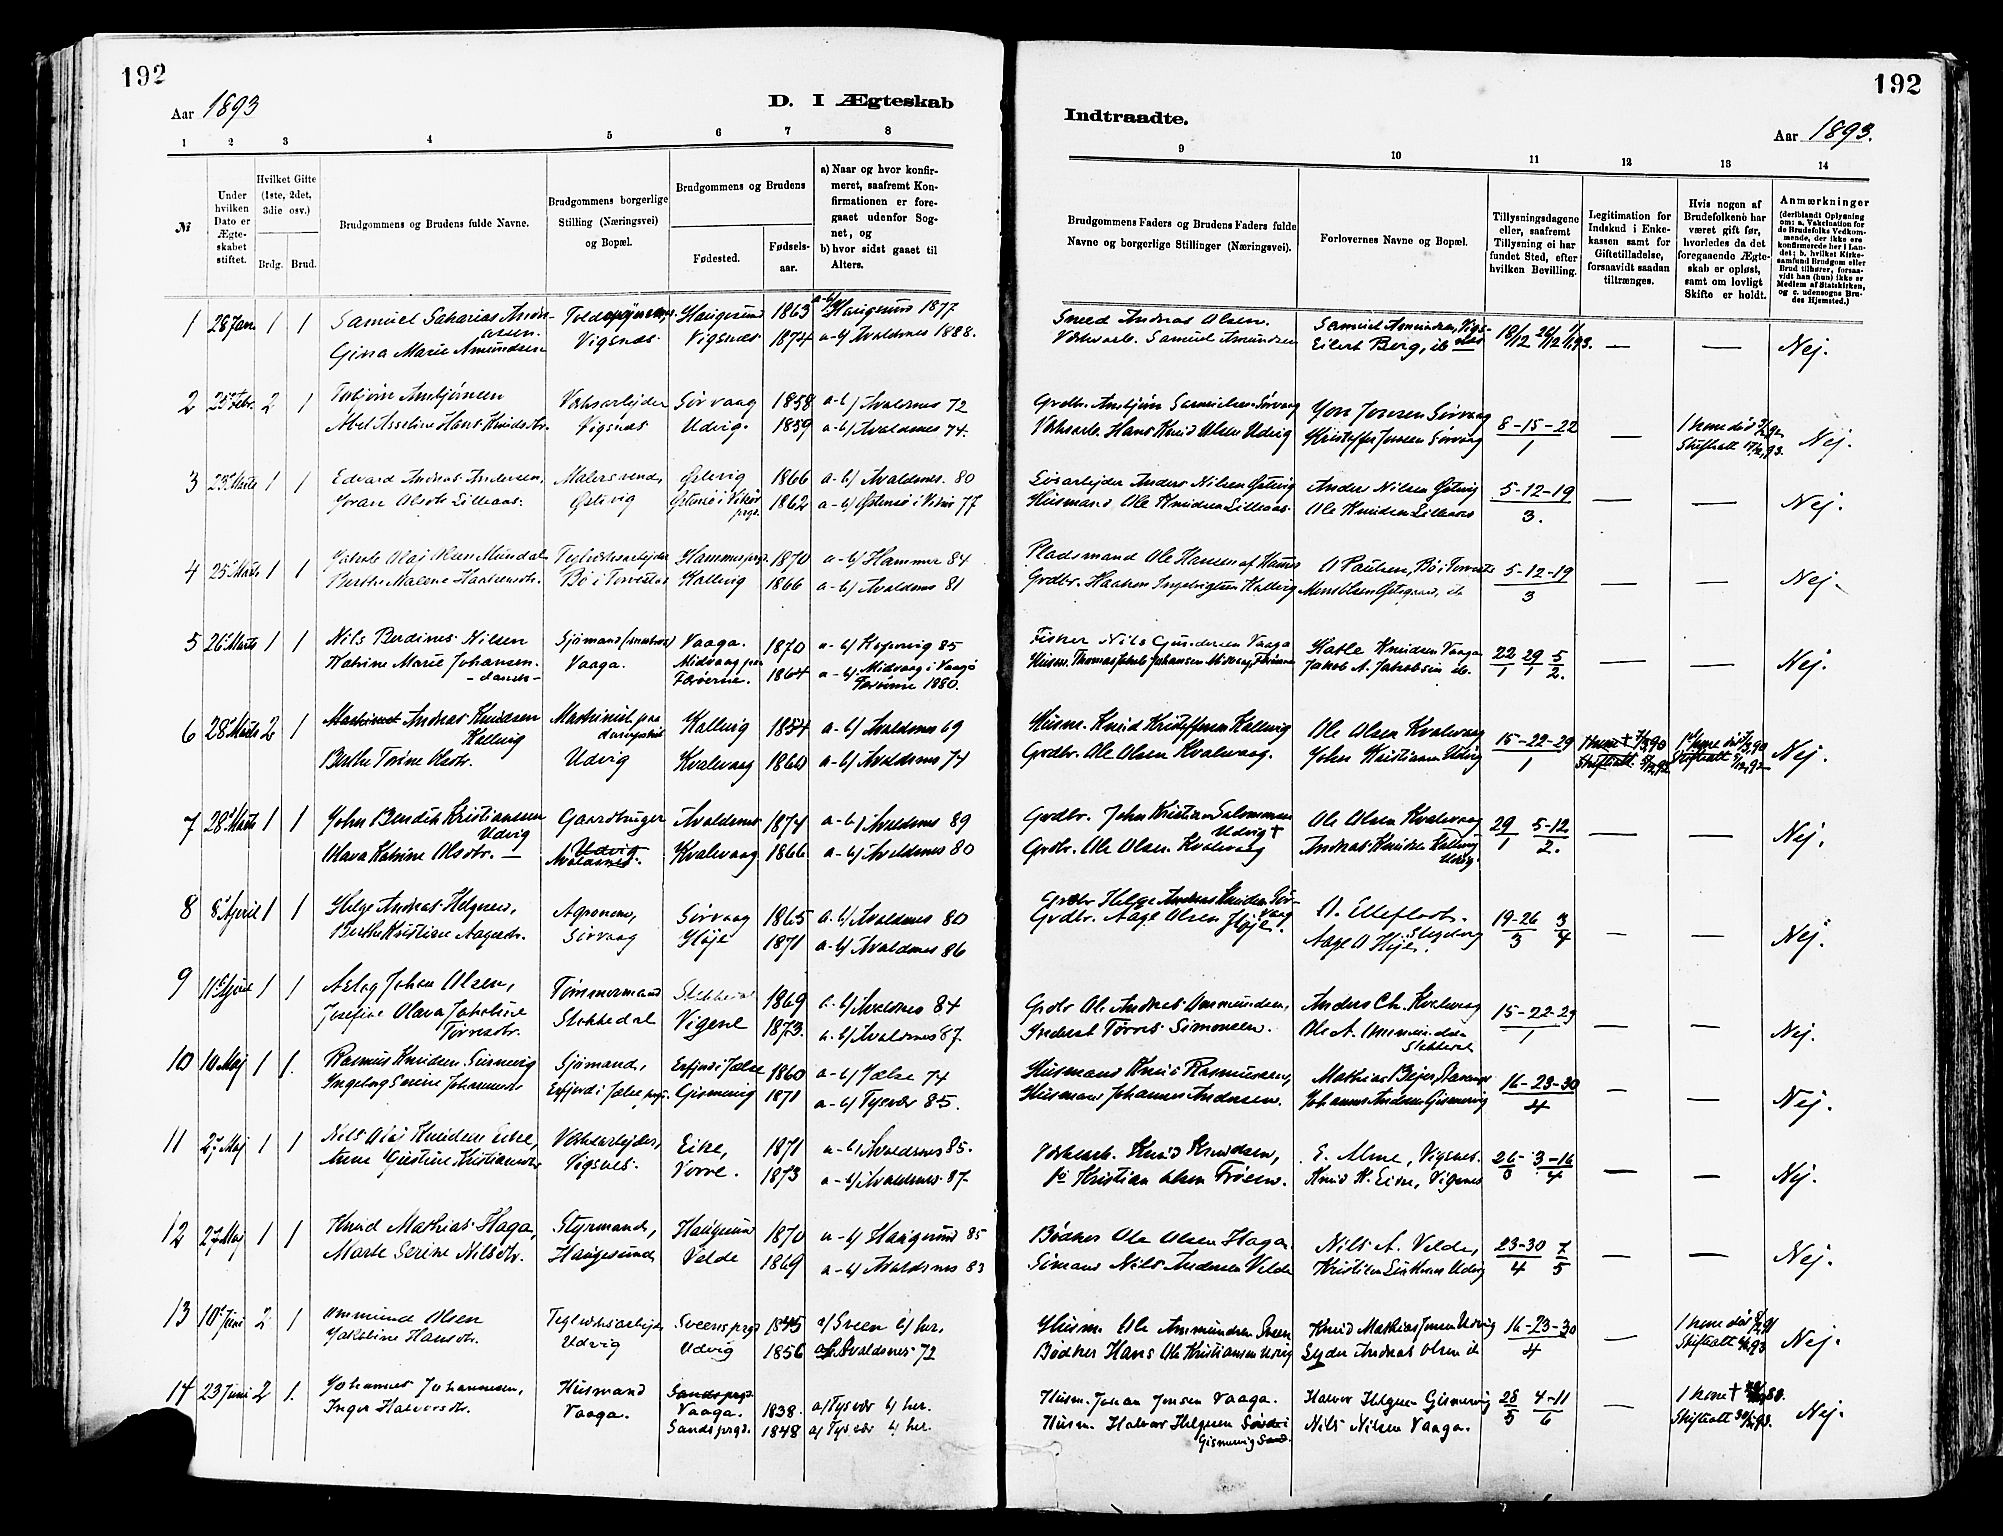 192
Aar 1893
D. I Ægteskab
1 2 3 4 5 6 7 8
№
Under hvilken Dato er Ægteskabet stiftet.
Hvilket Gifte (1ste, 2det, 3die osv.)
Brdg. Brud.
Brudgommens og Brudens fulde Navne.
Brudgommens borgerlige Stilling (Næringsvei) og Bopæl.
Brudgommens og Brudens
Fødested.
Fødselsaar.
a) Naar og hvor konfirmeret, saafremt Konfirmationen er foregaaet udenfor Sognet, og
b) hvor sidst gaaet til Alters.
1 28 Jan 1 1 Samuel Saharias Andreasen Haugesund 1863 a-b/ Haugesund 1877
Gina Marie Amundsen Vigsnæs Vigsnæs 1874 a-b/ Avaldsnes 1888.
2 25 Febr. 2 1 Torbjörn Arnbjörnsen Verksarbejder Sörvaag 1858 a-b/ Avaldsnes 72
Abel Asseline Hans Knudsdtr. Vigsnæs Udvig. 1859 a-b/ Avaldsnes 74.
3 23 Marts 1 1 Edvard Andreas Andersen, Malersvend, Östevig 1866 a-b/ Avaldsnes. 80
Olsdtr. Lilleaas. Östevig 1862 77
4 25 Marts 1 1 Olai Olsen Mundal Teglverksarbejder Hammersprgj. 1870 a-b/ Hammer 84
Berthe Malene Haakensdtr. Bö i Torvestad Hallvig 1866 a-b/ Avaldsnes 81
5 26 Marts 1 1 Nils Berdines Nilsen Sjömand Vaaga. 1870 a-b/ Kopervig 85
Katrine Marie Johansen. Vaaga. Midvaag Færöerne. 1864 a-b/ Midvaag i Vaagö
-dansk- Færöerne 1880.
6 28 Marts 2 1 Andreas Knudsen Maskinist paa Kallevig 1854 a-b/ Avaldsnes 69
Kallevig
Berthe Torine Olsdtr. Udvig Kvalevaag 1860 a-b/ Avaldsnes 74
7 28 Marts 1 1 John Bendik Kristiansen Gaardbruger Avaldsnes 1874 a-b/ Avaldsnes 89
Udvig
Olava Katrine Olsdtr. Udvig Avaldsnes. Kvalevaag 1866 a-b/ Avaldsnes 80
8 8 April 1 1 Helge Andreas Helgesen, Agronom, Sörvaag 1865 a-b/ Avaldsnes 80
Berthe Kristine Aagesdtr. Sörvaag Höje 1871 a-b/ Avaldsnes 86
9 11 April 1 1 Aslag Johan Olsen, Tömmermand Stokkedal 1869 a-b/ Avaldsnes 84
Josefine Olava Jakobine Stokkedal Vigene 1873. a-b/ Avaldsnes 87.
Törresdtr.
10 10 Maj 1 1. Rasmus Knudsen Gismervig Sjömand, Erfjord i Jelse 1860 a-b/ Jelse 74
Ingeborg Serine Johannesdtr. Erfjord i Jelse prgj. Gismervig 1871 a-b/ Tysvær 85.
11 27 Maj 1 1 Nils Olai Knudsen Eike, Verksarbejder, Eike, 1871 a-b/ Avaldsnes 85.
Anne Kristine Kristiansdtr. Vigsnes. Vorre. 1873 a-b/ Avaldsnes. 87.
12 27 Maj 1 1 Knud Mathias Haga, Styrmand, Haugesund 1870 a-b/ Haugesund 85
Marte Serine Nilsdtr. Haugesund Velde 1869 a-b/ Avaldsnes 83
13 10 Juni 2 1 Ommund Olsen Teglverksarbejder Sveens prgj. 1845 a/ Sveen b/ her.
Jakobine Hansdtr. Udvig Udvig 1856 Avaldsnes 72
14 23 Juni 2 1. Johannes Johannesen, Husmand Vaaga. 1838. a/ Tysvær b/ her.
Inger Halvorsdtr. Vaaga. Sands prgj. 1848 a/ Tysvær b/ her.
192
Indtraadte.
Aar 1893.
9 10 11 12 13 14
Brudgommens Faders og Brudens Faders fulde Navne og borgerlige Stillinger (Næringsvei).
Forlovernes Navne og Bopæl.
Tillysningsdagene eller, saafremt Tillysning ei har fundet Sted, efter hvilken Bevilling.
Legitimation for Indskud i Enkekassen samt for Giftetilladelse, forsaavidt saadan tiltrænges.
Hvis nogen af Brudefolkene har været gift før, hvorledes da det foregaaende Ægteskab er opløst, samt om lovligt Skifte er holdt.
Anmærkninger
(deriblandt Oplysning om: a. Vakcination for de Brudefolks Vedkommende, der ikke ere konfirmerede her i Landet; b. hvilket Kirkesamfund Brudgom eller Brud tilhører, forsaavidt han (hun) ikke er Medlem af Statskirken, og c. udensogns Brudes Hjemsted.)
Smed Andreas Olsen. Samuel Amundsen, Vigsnæs 18/12 26/12 1/1 93. — — Nej.
Verksarb. Samuel Amundsen Eilert Berg, ib
Grdbr. Arnbjörn Samuelsen Sörvaag Jon Jensen Sörvaag 8-15-22/1 — 1 kone död Nej.
Verksarb. Hans Knud Olsen Udvig Kristoffer Jensen Sörvaag Skifteatt.
Anders Nilsen Östevig Anders Nilsen Östevig 5-12-19/3. — — Nej.
Husmand Ole Knudsen Lilleaas. Ole Knudsen Lilleaas
Pladsmand Ole Hansen O Paulsen, Bö i Torvestad 5-12-19/3 — — Nej-
Grdbr. Haaken Ingebrigtsen Hallvig Mons Olsen
Fisker Nils Gundersen Vaaga Kolle Knudsen Vaaga 22/1 29/1 5/2. — — Nej.
Husm. Thomas Jakob Johansen Midvaag, Færöerne Jakob A. Jakobsen ib.
Husm. Knud Kristoffersen Kallevig Ole Olsen Kvalevaag 15-22-29/1 1 kone död Nej.
Grdbr. Ole Olsen Kvalevaag. John Kristiansen Udvig Skifteatt.
Grdbr. John Kristian Salomonsen Ole Olsen Kvalevaag 29/1 5-12/2. — — Nej.
Udvig †
Grdbr. Ole Olsen Kvalevaag Andreas Knudsen Kallevig
Udvig.
Grdbr Helge Andreas Knudsen Sörvaag 19-26/3 3/4 — — Nej.
Grdbr. Aage Olsen Höje. Aage O Höje.
Grdbr Ole Andreas Ommundsen, Anders Ch. Kvalevaag 15-22-29/1 — — Nej.
Inderst Törres Simonsen. Ole A. Ommundsen
Stokkedal
Husmand Knud Rasmussen, Mathias Bejer, Stavanger 16-23-30/4 — — Nej.
Husmand Johannes Andersen. Johannes Andersen Gismervig
Verksarb. Knud Knudsen, E. Alme, Vigsnes. 26/3 3-16/4 — — Nej.
do Kristian Olsen Knud K. Eike, Vigsnes
Bödker Ole Olsen Haga. Nils A. Velde, 23-30/4 7/5 — — Nej.
Sömand Nils Andersen Velde Kristian Udvig
Husm. Ole Ammundsen Sveen Knud Mathias Jensen Udvig 16-23-30/4 — 1 kone död Nej.
Bödker Hans Ole Kristiansen Udvig Andreas Olsen ib Skifteatt.
Husm. Johan Jensen Vaaga. Halvor Helgesen Gismervig 28/5 4-11/6 — 1 kone † Nej.
Husm. Halvor Helgesen Nils Nilsen Vaaga. Skifteatt.
Gismervig